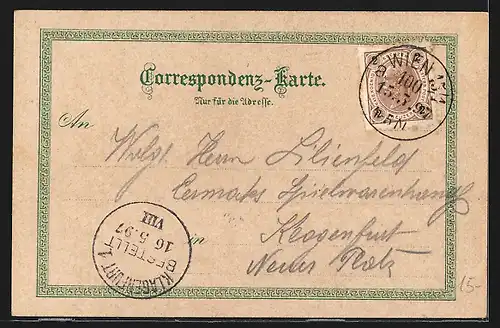 WIEN
Correspondenz-Karte.
Nur für die Adresse.
An
Wolg. Herrn Lilienfeld
Spielwarenhandg
in Klagenfurt
Neuer Platz
KLAGENFURT 1
BESTELLT
16.5.97
VIII
15-